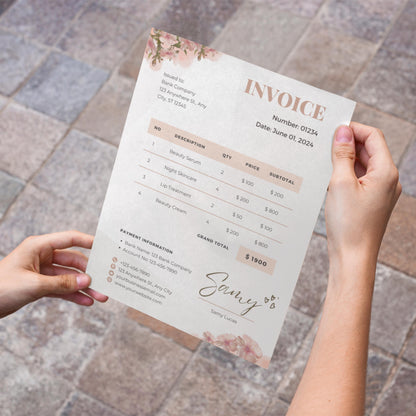 INVOICE
Issued to:
Bank Company
123 Anywhere St., Any
City, ST 12345
Number: 01234
Date: June 01, 2024
NO DESCRIPTION QTY PRICE SUBTOTAL
1 Beauty Serum 2 $ 100 $ 200
2 Night Skincare 4 $ 200 $ 800
3 Lip Treatment 2 $ 50 $ 100
4 Beauty Cream 4 $ 200 $ 800
GRAND TOTAL $ 1900
PAYMENT INFORMATION
Bank Name: Bank Company
Account No: 123-456-7890
+123-456-7890
yourbusinessemail.com
www.yourwebsite.com
Samy
Samy Lucas